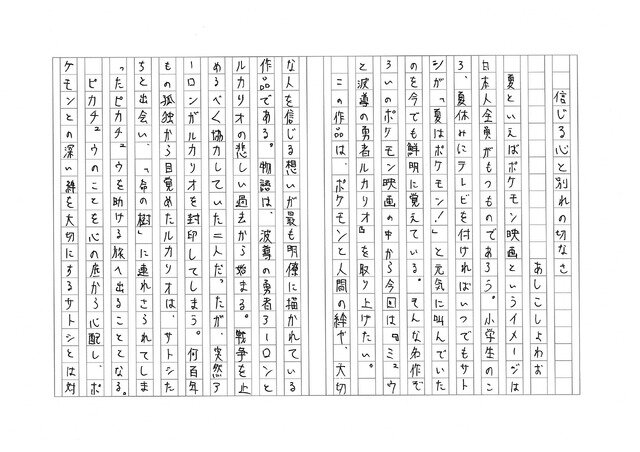 信じる心と別れの切なさ
あしこしょわお
夏といえばポケモン映画というイメージは
日本人全員がもつものであろう。小学生のこ
ろ、夏休みにテレビを付ければいつでもサト
シが「夏はポケモン!」と元気に叫んでいた
のを今でも鮮明に覚えている。そんな名作ぞ
ろいのポケモン映画の中から今回は『ミュウ
と波導の勇者ルカリオ』を取り上げたい。
この作品は、ポケモンと人間の絆や、大切
な人を信じる想いが最も明僚に描かれている
作品である。物語は、波導の勇者アーロンと
ルカリオの悲しい過去から始まる。戦争を止
めるべく協力していた二人だったが、突然ア
ーロンがルカリオを封印してしまう。何百年
もの孤独から目覚めたルカリオは、サトシた
ちと出会い、「命の樹」に連れさられてしま
ったピカチュウを助ける旅へ出ることとなる。
ピカチュウのことを心の底から心配し、ポ
ケモンとの深い絆を大切にするサトシとは対